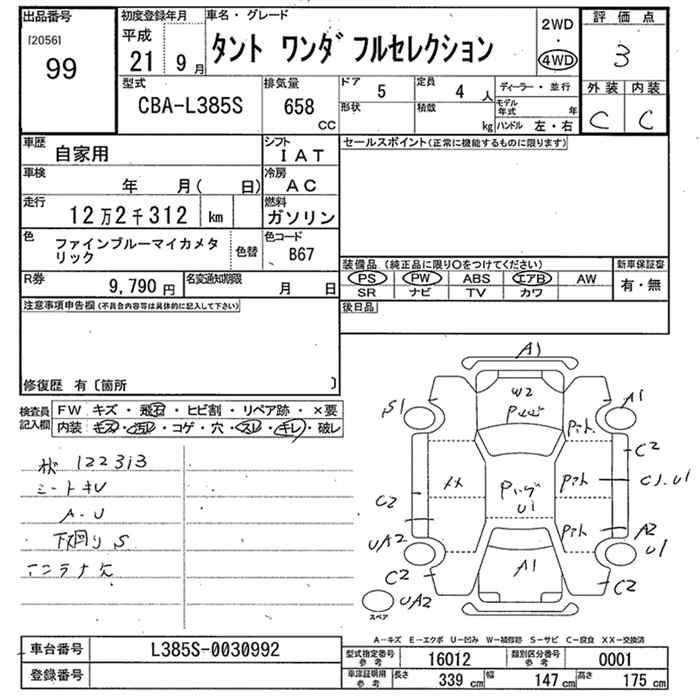 出品番号
[2056]
99
初度登録年月
平成
21年 9月
車名・グレード
タント ワンダフルセレクション
2WD
・
4WD
評価点
3
外装 内装
C C
型式
CBA-L385S
排気量
658
CC
ドア 5
形状
定員 4 人
積載 kg
ディーラー・並行
モデル年式 年
ハンドル 左・右
車歴
自家用
シフト
IAT
セールスポイント(正常に機能するものに限ります)
車検
年 月( 日)
冷房
AC
走行
12万2千312 km
燃料
ガソリン
色
ファインブルーマイカメタリック
色替
色コード
B67
R券
9,790 円
名変通知期限
月 日
装備品(純正品に限り○をつけてください)
PS PW ABS エアB AW
SR ナビ TV カワ
新車保証書
有・無
後日品
注意事項申告欄(不具合内容等は具体的に記入して下さい)
修復歴 有〔箇所 〕
検査員記入欄
FW キズ・飛石・ヒビ割・リペア跡・×要
内装 キズ・汚れ・コゲ・穴・スレ・キレ・破レ
122313
シートキレ
A-U
下廻りS
アンテナ欠
A1
W2
S1
A1
C2
U1
C2
C1.U1
A2
U1
UA2
C2
A1
C2
UA2
スペア
A-キズ E-エクボ U-凹み W-補修跡 S-サビ C-腐食 XX-交換済
車台番号
L385S-0030992
登録番号
型式指定番号
参考
16012
類別区分番号
参考
0001
車庫証明用
参考
長さ 339 cm
幅 147 cm
高さ 175 cm